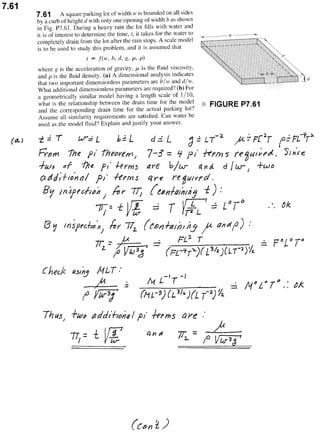 7.61
7.61 A square parking lot of width w is bounded on all sides
by a curb of height d with only one opening of width b as shown
in Fig. P7.61. During a heavy rain the lot fills with water and
it is of interest to determine the time, t, it takes for the water to
completely drain from the lot after the rain stops. A scale model
is to be used to study this problem, and it is assumed that
t = f(w, b, d, g, μ, ρ)
where g is the acceleration of gravity, μ is the fluid viscosity,
and ρ is the fluid density. (a) A dimensional analysis indicates
that two important dimensionless parameters are b/w and d/w.
What additional dimensionless parameters are required? (b) For
a geometrically similar model having a length scale of 1/10,
what is the relationship between the drain time for the model
and the corresponding drain time for the actual parking lot?
Assume all similarity requirements are satisfied. Can water be
used as the model fluid? Explain and justify your answer.
FIGURE P7.61
(a.) t ≐ T w ≐ L b ≐ L d ≐ L g ≐ LT⁻² μ ≐ FL⁻²T ρ ≐ FL⁻⁴T²
From the pi theorem, 7-3 = 4 pi terms required. Since
two of the pi terms are b/w and d/w, two
additional pi terms are required.
By inspection, for π₁ (containing t):
π₁ = t √(g/w) ≐ T √(L/(T²L)) ≐ L⁰T⁰ ∴ OK
By inspection, for π₂ (containing μ and ρ):
π₂ = μ / (ρ √(w³g)) ≐ FL⁻²T / ((FL⁻⁴T²)(L^3/2)(LT⁻²)^½) ≐ F⁰L⁰T⁰
Check using MLT:
μ / (ρ √(w³g)) ≐ ML⁻¹T⁻¹ / ((ML⁻³)(L^3/2)(LT⁻²)^½) ≐ M⁰L⁰T⁰ ∴ OK
Thus, two additional pi terms are:
π₁ = t √(g/w) and π₂ = μ / (ρ √(w³g))
(con't)